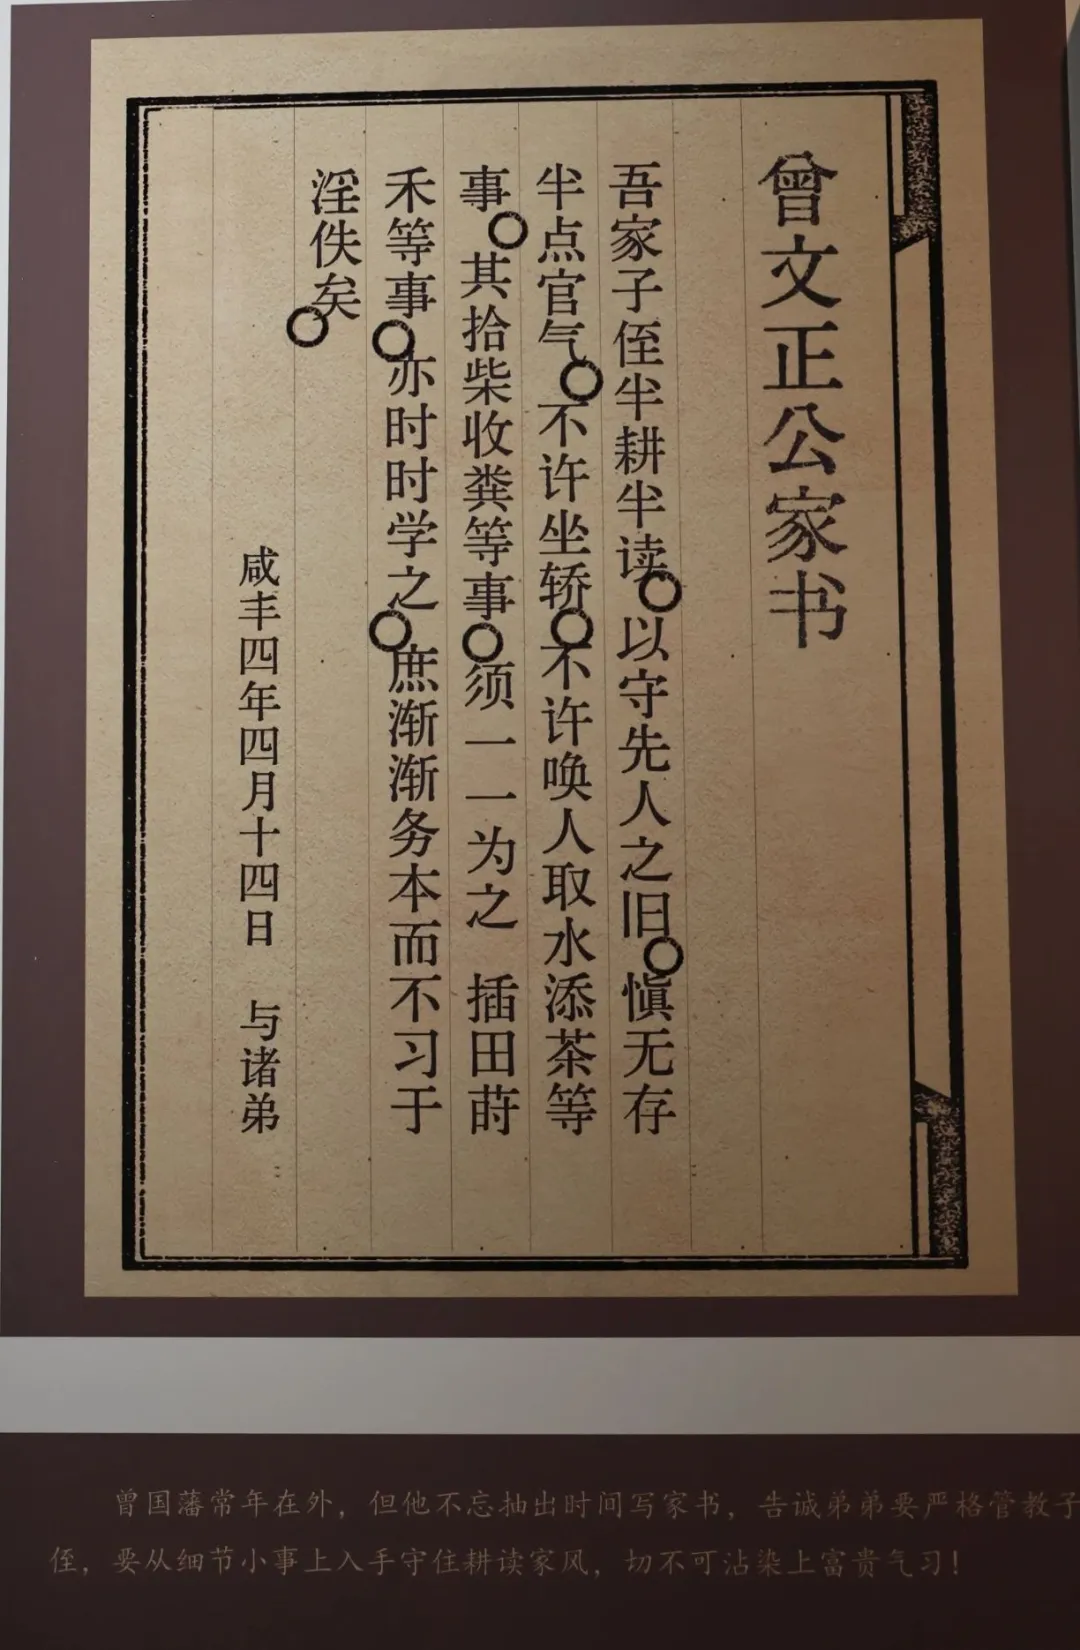 曾文正公家书
吾家子侄半耕半读○以守先人之旧○慎无存
半点官气○不许坐轿○不许唤人取水添茶等
事○其拾柴收粪等事○须一一为之 插田莳
禾等事○亦时时学之○庶渐渐务本而不习于
淫佚矣○
咸丰四年四月十四日 与诸弟
曾国藩常年在外，但他不忘抽出时间写家书，告诫弟弟要严格管教子
侄，要从细节小事上入手守住耕读家风，切不可沾染上富贵气习！